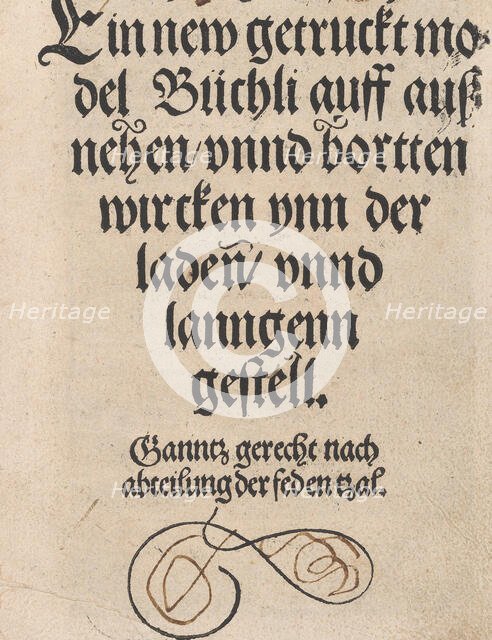 Ein new getruckt mo
del Büchli auff auß
nehen/ vnnd bortten
wircken ynn der
laden̄/ vnnd
lanngenn
gestell..
Ganntz gerecht nach
abteilung der feden tzal.
Heritage Heritage
Heritage Heritage
Heritage Heritage